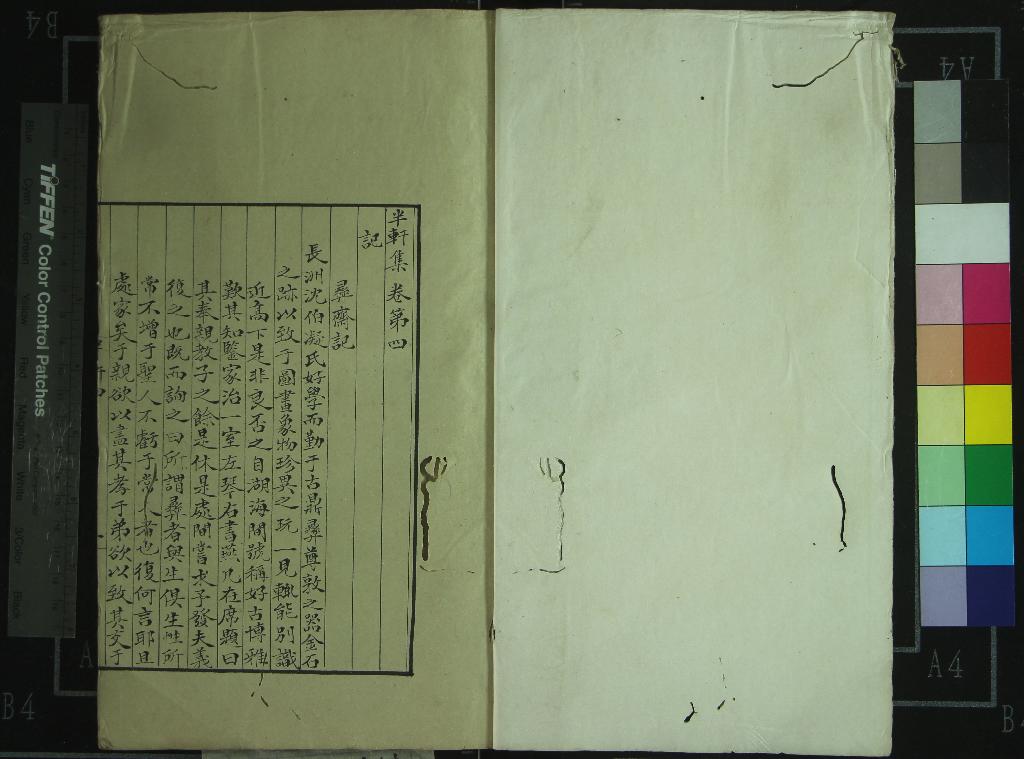 半軒集卷第四
記
彞齋記
長洲沈伯凝氏好學而勤于古鼎彞尊敦之器金石
之跡以致于圖畫象物珍異之玩一見輒能別識
近高下是非良否之自湖海間號稱好古博雅
歎其知鑒家治一室左琴右書燕几在席題曰
其奉親教子之餘是休是處間嘗求予發夫義
復之也既而詢之曰所謂彞者與生俱生性所
常不增于聖人不虧于常人者也復何言耶且
處家矣于親欲以盡其孝于弟欲以致其友于
TIFFEN Color Control Patches
Blue
Cyan
Green
Yellow
Red
Magenta
White
3/Color
Black
B4
A4
A4
B4
A
B